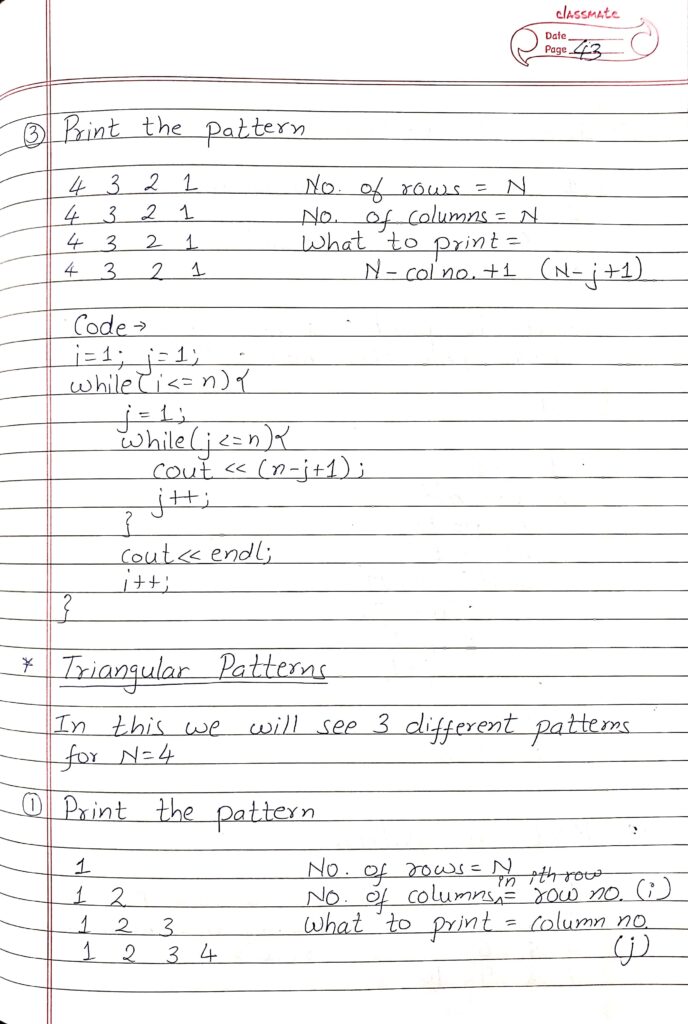 classmate
Date
Page 43
③ Print the pattern
4 3 2 1 No. of rows = N
4 3 2 1 No. of columns = N
4 3 2 1 What to print =
4 3 2 1 N - col no. +1 (N-j+1)
Code →
i=1; j=1;
while(i<=n){
j=1;
while(j<=n){
cout << (n-j+1);
j++;
}
cout<< endl;
i++;
}
* Triangular Patterns
In this we will see 3 different patterns
for N=4
① Print the pattern
1 No. of rows = N
in ith row
1 2 No. of columns = row no. (i)
1 2 3 What to print = column no.
1 2 3 4 (j)